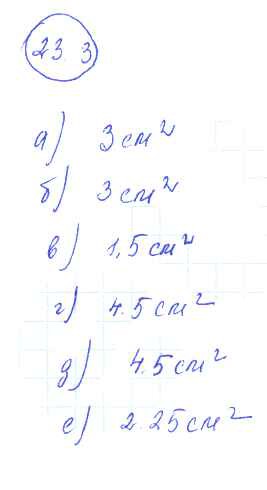 23.3
а) 3 см²
б) 3 см²
в) 1,5 см²
г) 4.5 см²
д) 4.5 см²
е) 2.25 см²